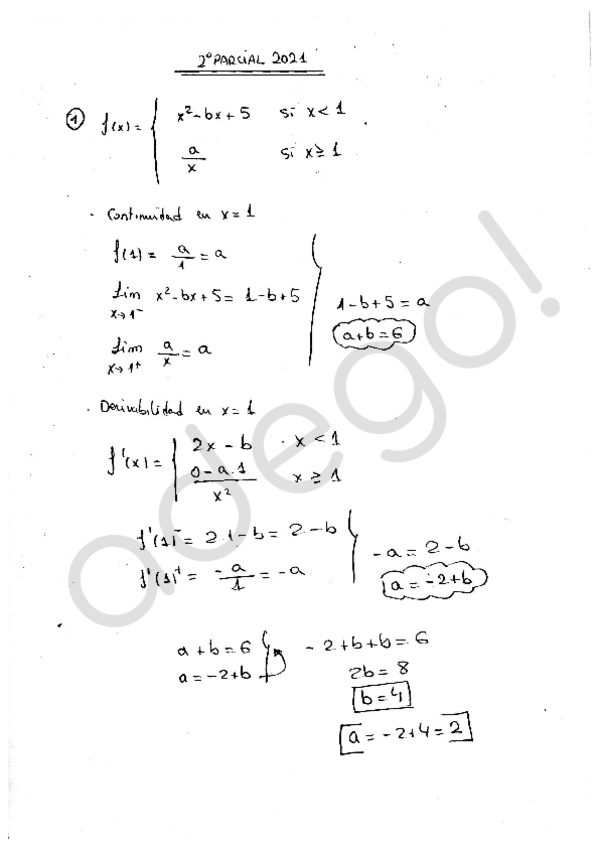 2º PARCIAL 2021
① f(x) = { x² - bx + 5 si x < 1
a/x si x ≥ 1
· Continuidad en x = 1
f(1) = a/1 = a
Lim x→1⁻ x² - bx + 5 = 1 - b + 5
Lim x→1⁺ a/x = a
1 - b + 5 = a
a + b = 6
· Derivabilidad en x = 1
f'(x) = | 2x - b · x < 1
0 - a.1 / x² x ≥ 1
f'(1)⁻ = 2.1 - b = 2 - b
f'(1)⁺ = -a/1 = -a
-a = 2 - b
a = -2 + b
a + b = 6
a = -2 + b
-2 + b + b = 6
2b = 8
b = 4
a = -2 + 4 = 2
adego!